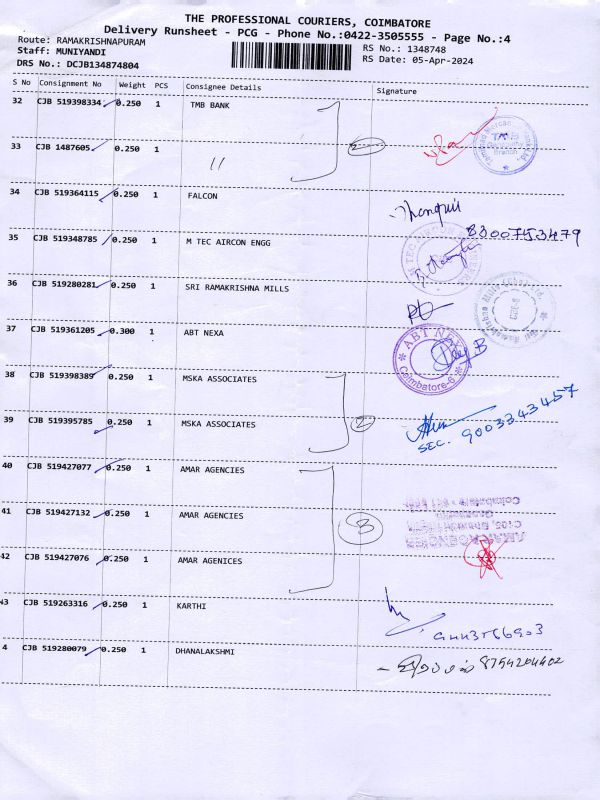 THE PROFESSIONAL COURIERS, COIMBATORE
Delivery Runsheet - PCG - Phone No.:0422-3505555 - Page No.:4
Route: RAMAKRISHNAPURAM
Staff: MUNIYANDI
DRS No.: DCJB134874804
RS No.: 1348748
RS Date: 05-Apr-2024
S No Consignment No Weight PCS Consignee Details Signature
32 CJB 519398334 0.250 1 TMB BANK
33 CJB 1487605 0.250 1 "
2
34 CJB 519364115 0.250 1 FALCON
8300753479
35 CJB 519348785 0.250 1 M TEC AIRCON ENGG
36 CJB 519280281 0.250 1 SRI RAMAKRISHNA MILLS
37 CJB 519361205 0.300 1 ABT NEXA
ABT
Coimbatore-6
38 CJB 519398389 0.250 1 MSKA ASSOCIATES
39 CJB 519395785 0.250 1 MSKA ASSOCIATES
2
SEC. 9003343457
40 CJB 519427077 0.250 1 AMAR AGENCIES
41 CJB 519427132 0.250 1 AMAR AGENCIES
3
42 CJB 519427076 0.250 1 AMAR AGENICES
43 CJB 519263316 0.250 1 KARTHI
4 CJB 519280079 0.250 1 DHANALAKSHMI
8754204402